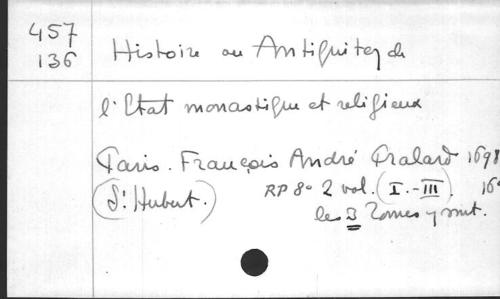 457
136
Histoire ou Antiquitez de
l'Etat monastique et religieux
Paris. François André Pralard 1698
(St Hubert.) RP 8° 2 vol. (I.-III). 16
les 3 Tomes y sont.